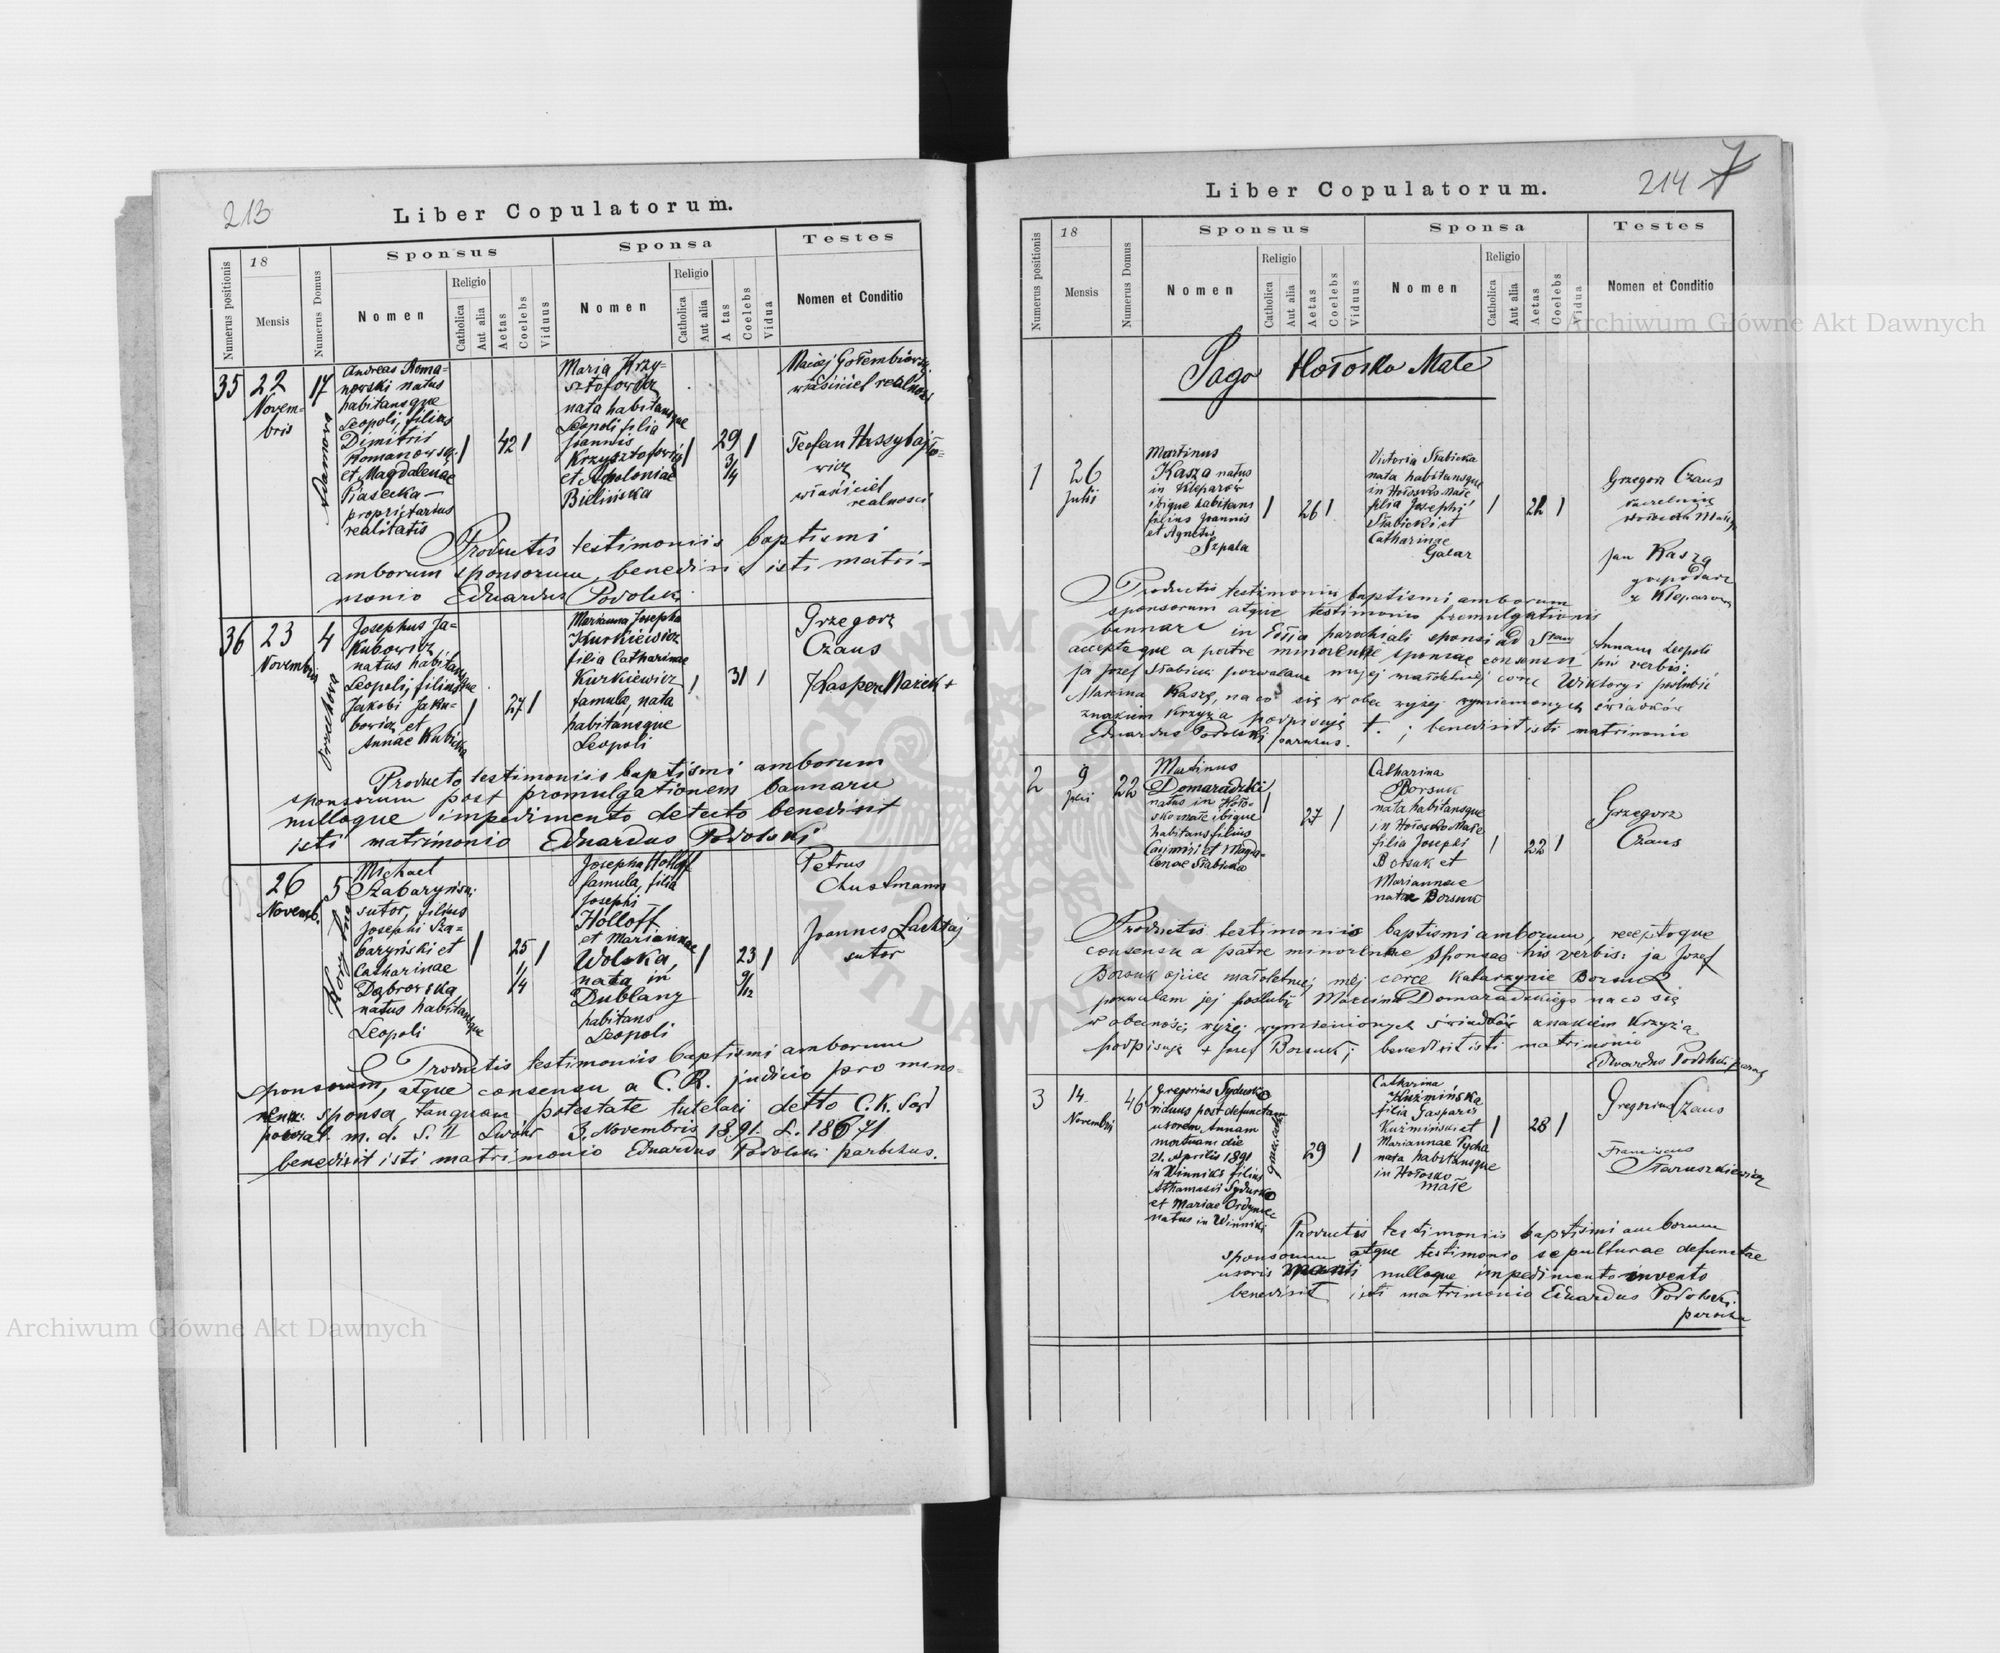 213
Liber Copulatorum.
Numerus positionis
18
Mensis
Numerus Domus
Sponsus
Nomen
Religio
Catholica
Aut alia
Aetas
Coelebs
Viduus
Sponsa
Nomen
Religio
Catholica
Aut alia
A tas
Coelebs
Vidua
Testes
Nomen et Conditio
35 22 Novem=
bris
17
Andreas Roma=
nowski natus
habitansque
Leopoli, filius
Dimitrii
Romanowski
et Magdalenae
Piasecka —
proprietarius
realitatis
42
Maria Krzy-
sztofowicz
nata habitansque
Leopoli filia
Joannis
Krzysztofowicz
et Apoloniae
Bielińska
29
3/4
Maciej Gołembiowski
właściciel realności
Teofan
właściciel
realności
Productis testimoniis baptismi
amborum sponsorum, benedixit isti matri-
monio Eduardus Podolski
36 23
Novembris
4
Josephus Ja=
kubowicz
natus habitansque
Leopoli, filius
Jakobi Jaku-
bowicz et
Annae Kubicka
27
Marianna Josepha
Kurkiewicz
filia Catharinae
Kurkiewicz
famula, nata
habitansque
Leopoli
31
Grzegorz
Czaus
Kasper Mazek +
Producto testimoniis baptismi amborum
sponsorum post promulgationem bannaru
nulloque impedimento detecto benedixit
isti matrimonio Eduardus Podolski
26
Novemb.
5
Michael
Szabaryński
sutor, filius
Josephi Sza-
baryński et
Catharinae
Dąbrowska
natus habitansque
Leopoli
25
1/4
Josepha Holloff
famula, filia
Josephi —
Holloff
et Mariannae
Wolska,
nata in
Dublany
habitans
Leopoli
23
9/12
Petrus
Chustmann
Joannes Lachtaj
sutor
Productis testimoniis baptismi amborum
sponsorum, atque consensu a C. R. judicio pro mino=
sponsa, tanquam potestate tutelari detto C. K. Sąd
powiat. m. d. S. II Lwów 3. Novembris 1891. L. 18671
benedixit isti matrimonio Eduardus Podolski parochus.
214
7
Liber Copulatorum.
Numerus positionis
18
Mensis
Numerus Domus
Sponsus
Nomen
Religio
Catholica
Aut alia
Aetas
Coelebs
Viduus
Sponsa
Nomen
Religio
Catholica
Aut alia
Aetas
Coelebs
Vidua
Testes
Nomen et Conditio
Pago Hołosko Małe
1 26
Julii
Martinus
Kasza natus
in Kleparów
ibique habitans
filius Joannis
et Agnetis
Szpala
26
Victoria Słabicka
nata habitansque
in Hołosko Małe
filia Josephi
Słabicki et
Catharinae
Galar
22
Grzegorz Czaus
Jan Kasza
gospodarz
z Kleparowa
Productis testimoniis baptismi amborum
sponsorum atque testimonio promulgationis
bannar in parochiali sponsi ad Annam Leopoli
accepta que a patre minorennis sponsae consensu his verbis:
ja Józef Słabicki pozwalam mojej małoletniej córce Wiktoryi poślubić
Marcina Kaszę, na co się w obec wyżej wymienionych świadków
znakiem krzyża podpisuję +. ; benedixit isti matrimonio
Eduardus Podolski parochus.
2 9
Julii
22
Martinus
Domaradzki
natus in Hoło-
sko małe ibique
habitans filius
Casimiri et Magda-
lenae Słabicka
27
Catharina
Borsuk
nata habitansque
in Hołosko Małe
filia Josephi
Borsuk et
Mariannae
natae Borsuk
22
Grzegorz
Czaus
Productis testimoniis baptismi amborum, receptoque
consensu a patre minorennae sponsae his verbis: ja Józef
Borsuk ojciec małoletniej mej córce Katarzynie Borsuk
pozwalam jej poślubić Marcina Domaradzkiego na co się
w obecności wyżej wymienionych świadków znakiem krzyża
podpisuję + Josef Borsuk; benedixit isti matrimonio
Eduardus Podolski paroch
3 14.
Novembris
46
Gregorius Sydurko
viduus post defunctam
uxorem Annam
mortuam die
21. Aprilis 1891
in Winniki filius
Athanasii Sydurko
et Mariae Ordyniec
natus in Winniki
29
Catharina
Kuźmińska
filia Gasparis
Kuźmiński et
Mariannae Pycha
nata habitansque
in Hołosko
małe
28
Gregorius Czaus
Franciscus
Staruszkiewicz
Productis testimoniis baptismi amborum
sponsorum atque testimonio sepulturae defunctae
uxoris nulloque impedimento invento
benedixit isti matrimonio Eduardus Podolski
parochus
Archiwum Główne Akt Dawnych
Archiwum Główne Akt Dawnych